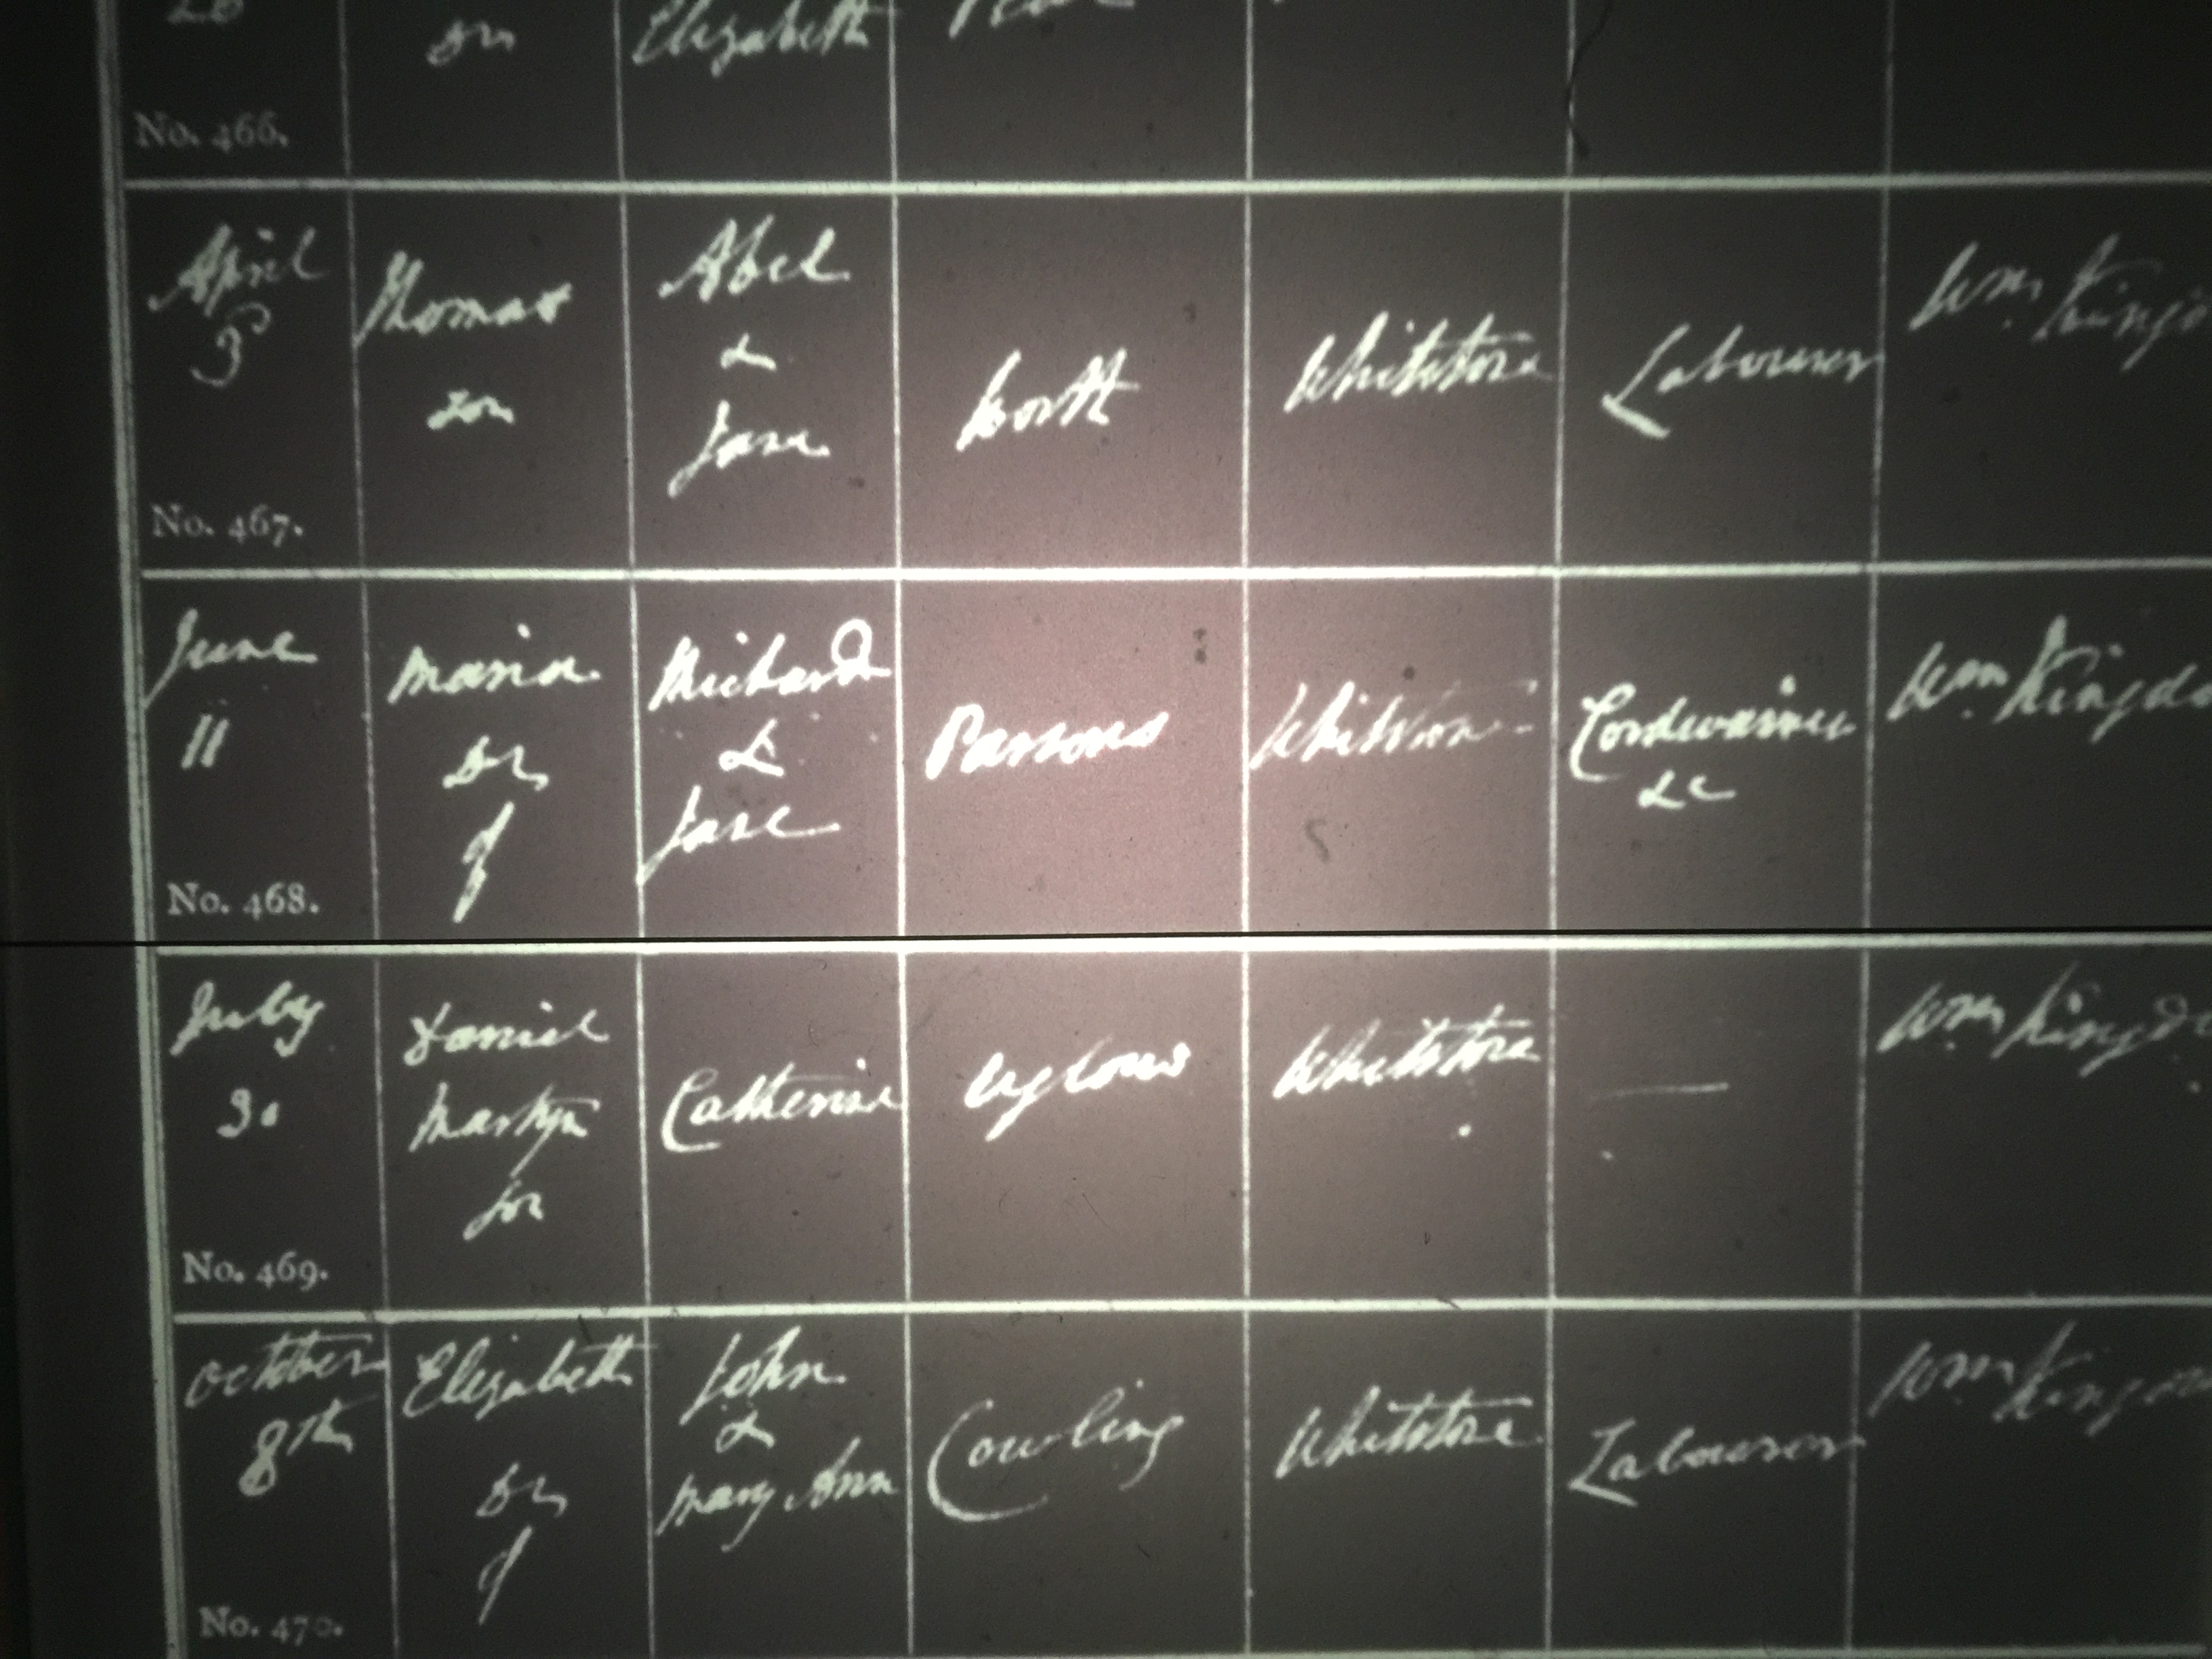 son Elizabeth
No. 466.
April 3 Thomas son Abel & Jane Whitstone Labourer Wm Kingd
No. 467.
June 11 Maria Dr of Richard & Jane Parsons Whitstone Cordwainer &c Wm Kingdo
No. 468.
July 30 Daniel Martyn son Catherine Uglow Whitstone — Wm Kingdo
No. 469.
October 8th Elizabeth Dr of John & Mary Ann Cowling Whitstone Labourer Wm Kingdon
No. 470.